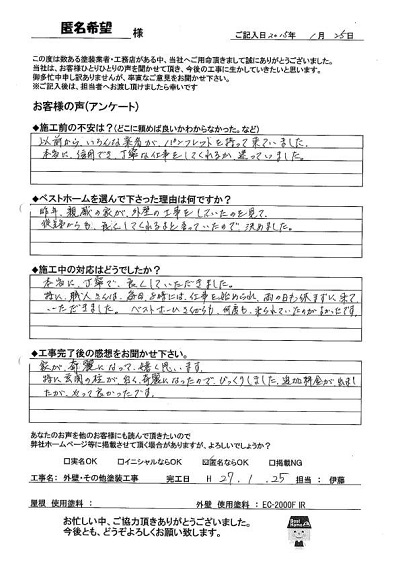 匿名希望 様
ご記入日 2015年 1月 25日
この度は数ある塗装業者・工務店がある中、当社へご用命頂きまして誠にありがとうございます。
当社は、お客様ひとりひとりの声を聞かせて頂き、今後の工事に生かしていきたいと思います。
御多忙中申し訳ありませんが、率直なご意見をお聞かせ下さい。
※ご記入後は、担当者へお渡し頂けましたら幸いです
お客様の声(アンケート)
◆施工前の不安は?(どこに頼めば良いかわからなかった。など)
以前から、いろんな業者が、パンフレットを持って来ていました。
本当に、信用でき、丁寧な仕事をしてくれるか、迷っていました。
◆ベストホームを選んで下さった理由は何ですか?
昨年、親戚の家が、外壁の工事をしていたのを見て、
からも、良くしてくれるよと言っていたので、決めました。
◆施工中の対応はどうでしたか?
本当に、丁寧で、良くしていただきました。
特に、職人さんは、毎日、8時には、仕事を始められ、雨の日も休まずに来て
いただきました。 ベストホームさんからも、何度も、来られていたのがよかったです
◆工事完了後の感想をお聞かせ下さい。
家が、奇麗になって、嬉く思います。
特に玄関の柱が、白く、奇麗になったので、びっくりしました、追加料金が出まし
たが、やって良かったです。
あなたのお声を他のお客様にも読んで頂きたいので
弊社ホームページ等に掲載させて頂く場合がありますが、よろしいでしょうか?
□実名OK □イニシャルならOK ☑匿名ならOK □掲載NG
工事名: 外壁・その他塗装工事 完工日 H 27. 1. 25 担当: 伊藤
屋根 使用塗料: 外壁 使用塗料: EC-2000F IR
お忙しい中、ご協力頂きありがとうございました。
今後とも、どうぞよろしくお願い致します。
Best Home